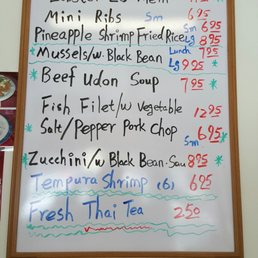 6.95
Mini Ribs Sm 6.95
Pineapple Shrimp Fried Rice Lg 8.95
Mussels/w Black Bean Lunch 7.95
Lg 9.95
Beef Udon Soup 7.95
Fish Filet/w Vegetable 12.95
Salt/Pepper Pork Chop Sm 6.95
Zucchini/w Black Bean-Sau 8.95
Tempura Shrimp (6) 6.95
Fresh Thai Tea 2.50